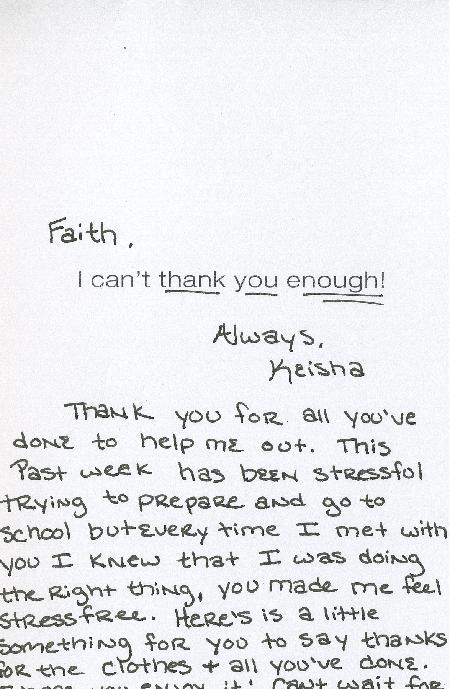 Faith,
I can't thank you enough!
Always,
Keisha
Thank you for all you've
done to help me out. This
Past week has been stressful
trying to prepare and go to
school but every time I met with
you I knew that I was doing
the Right thing, you made me feel
stress free. Here's is a little
something for you to say thanks
for the clothes + all you've done.
you enjoy it! Can't wait for